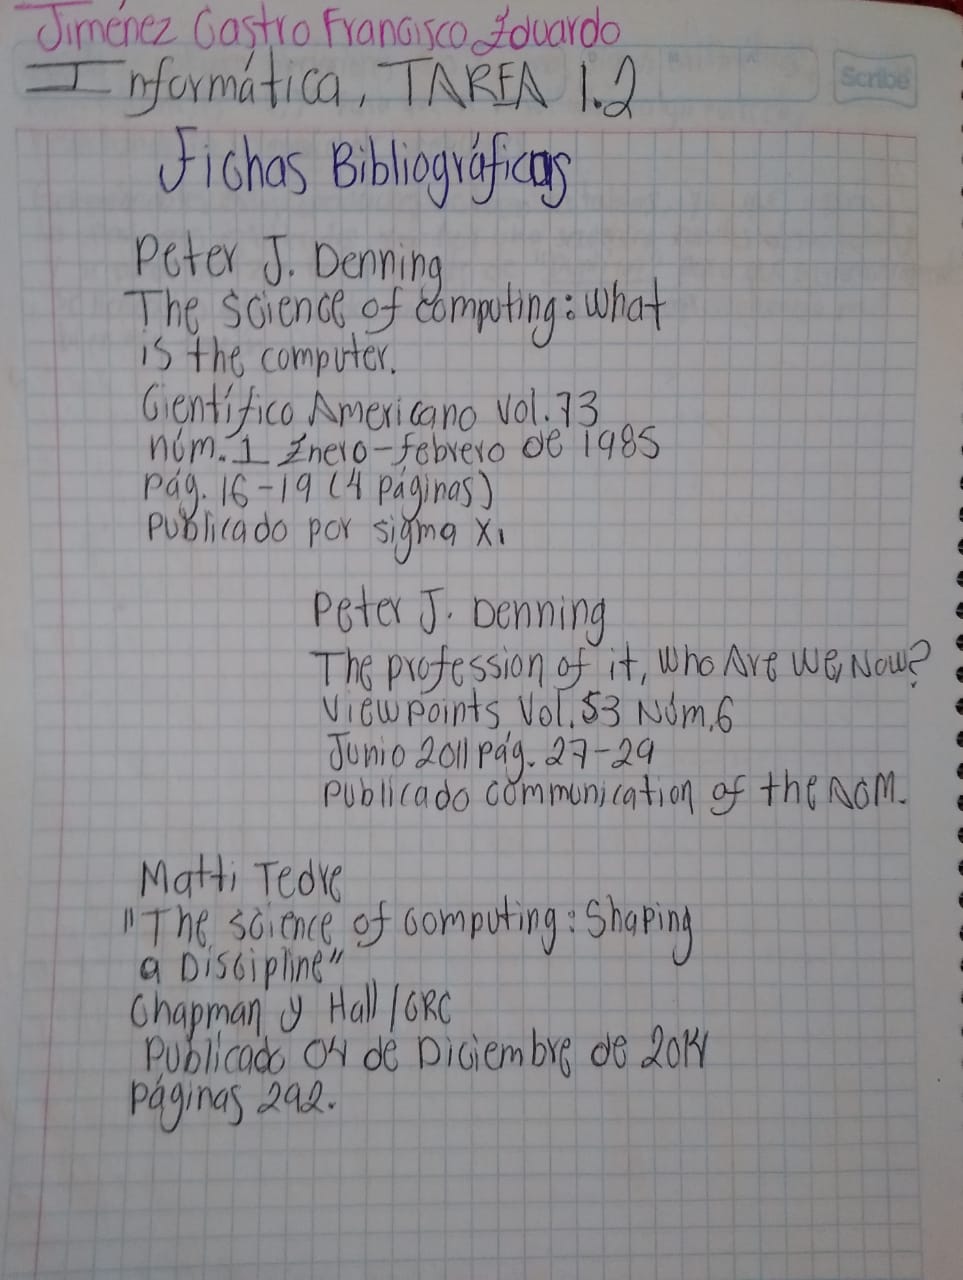 Jiménez Castro Francisco Eduardo
Informática, TAREA 1.2
Scribe
Fichas Bibliográficas
Peter J. Denning
The science of computing: what
is the computer.
Científico Americano Vol. 73
núm. 1 Enero-febrero de 1985
Pág. 16-19 (4 páginas)
Publicado por sigma Xi
Peter J. Denning
The profession of it, Who Are We, Now?
Viewpoints Vol. 53 Núm. 6
Junio 2011 pág. 27-29
Publicado communication of the ACM.
Matti Tedre
"The science of computing: Shaping
a Discipline"
Chapman y Hall/CRC
Publicado 04 de Diciembre de 2014
Páginas 292.